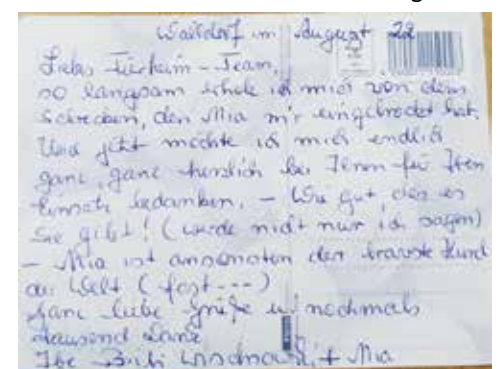 Walldorf im August 22
Liebes Tierheim-Team,
so langsam erhole ich mich von dem
Schrecken, den Mia mir eingebrockt hat.
Und jetzt möchte ich mich endlich
ganz, ganz herzlich bei Ihnen für Ihren
Einsatz bedanken. - Wie gut, dass es
Sie gibt! (würde nicht nur ich sagen)
- Mia ist ansonsten der bravste Hund
der Welt (fast ---)
Ganz liebe Grüße u. nochmals
tausend Dank
Ihre + Mia